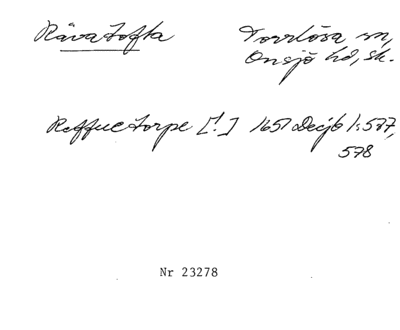 Rävatofta Torrlösa sn,
Onsjö hd, sk.
Reffuetorpe [!] 1651 Decjb 1:577,
578
Nr 23278